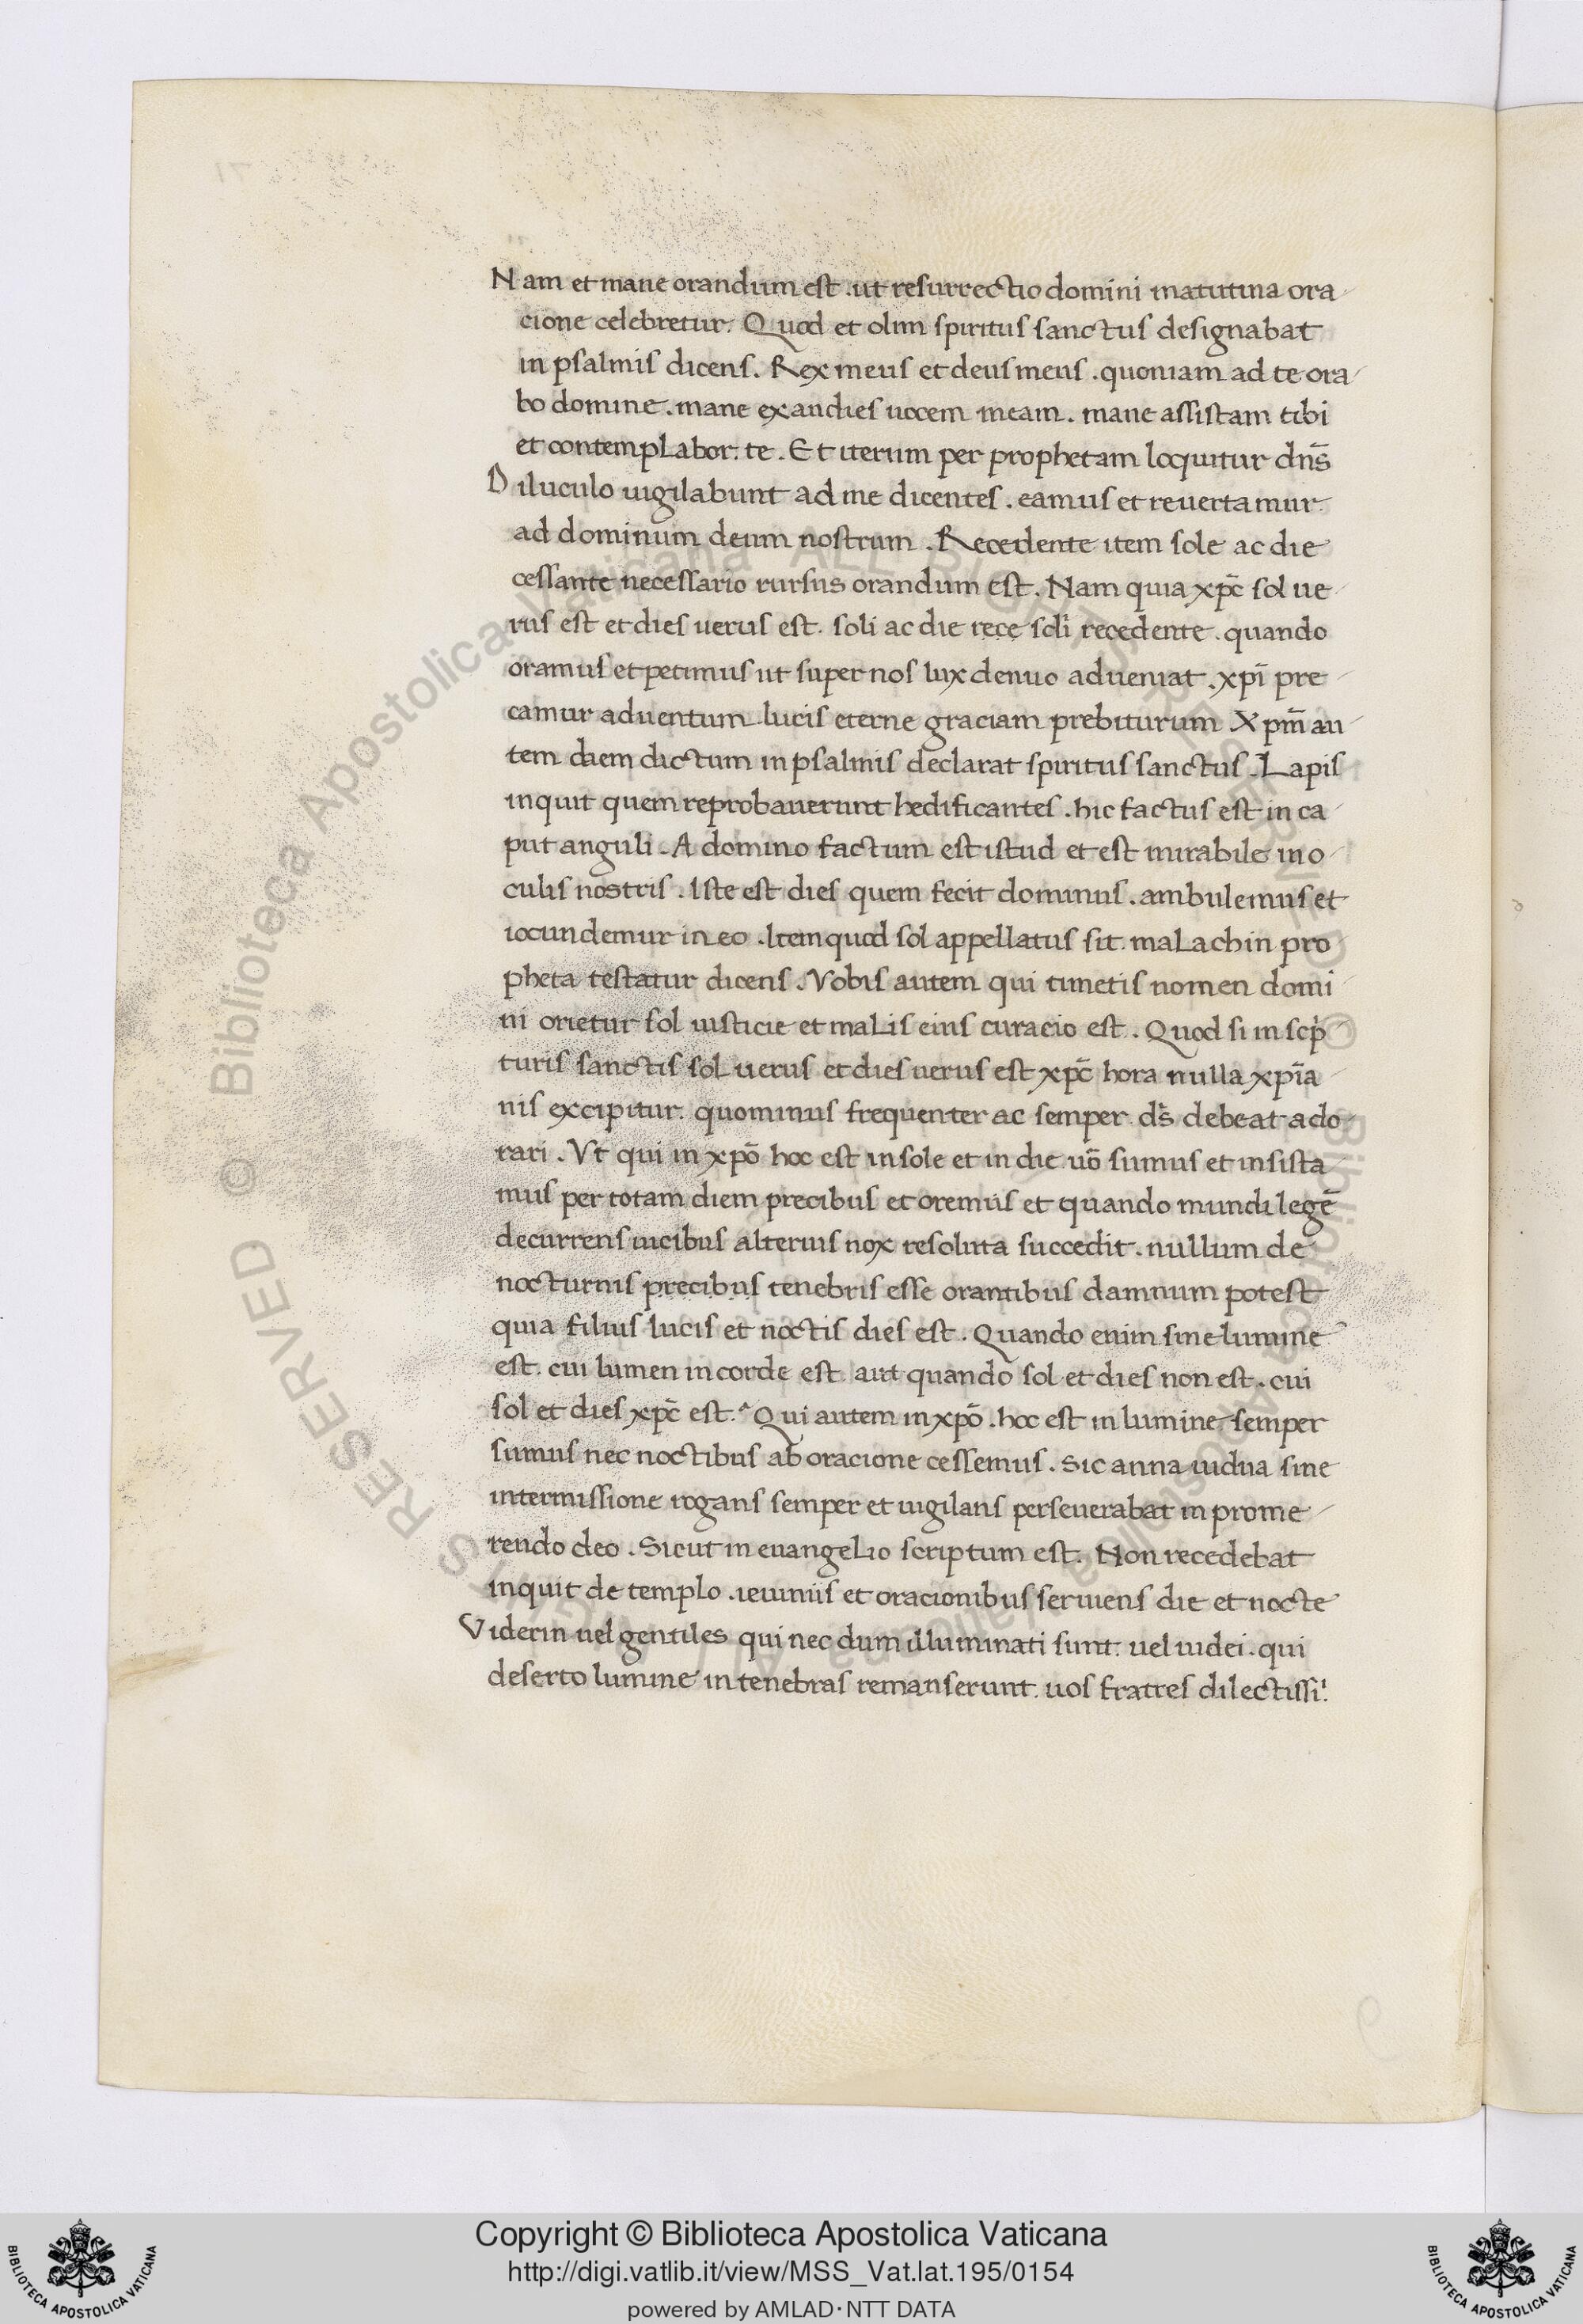 Nam et mane orandum est . ut resurrectio domini matutina ora
cione celebretur. Quod et olim spiritus sanctus designabat
in psalmis dicens . Rex meus et deus meus . quoniam ad te ora
bo domine . mane exaudies uocem meam . mane assistam tibi
et contemplabor. te . Et iterum per prophetam loquitur dn̄s
Diluculo uigilabunt ad me dicentes . eamus et reuertamur
ad dominum deum nostrum . Recedente item sole ac die
cessante necessario rursus orandum est . Nam quia xpc̄ sol ue
rus est et dies uerus est . soli ac die rece scl̄i recedente . quando
oramus et petimus ut super nos lux denuo adueniat . xpī pre
camur aduentum lucis eterne graciam prebiturum Xpm̄ au
tem diem dictum in psalmis declarat spiritus sanctus . Lapis
inquit quem reprobauerunt hedificantes . hic factus est in ca
put anguli . A domino factum est istud et est mirabile in o
culis nostris . Iste est dies quem fecit dominus . ambulemus et
iocundemur in eo . Item quod sol appellatus sit . malachin pro
pheta testatur dicens . Vobis autem qui timetis nomen domi
ni orietur sol iusticie et malis eius curacio est . Quod si in scp̄
turis sanctis sol uerus et dies uerus est xpc̄ hora nulla xpīa
nis excipitur . quominus frequenter ac semper ds̄ debeat ado
rari . Vt qui in xpō hoc est in sole et in die uō sumus et insista
mus per totam diem precibus et oremus et quando mundi legē
decurrens uicibus alterius nox resoluta succedit . nullum de
nocturnis precibus tenebris esse orantibus damnum potest
quia filius lucis et noctis dies est . Quando enim sine lumine
est . cui lumen in corde est aut quando sol et dies non est . cui
sol et dies xpc̄ est . Qui autem in xpō . hoc est in lumine semper
sumus nec noctibus ab oracione cessemus . Sic anna uidua sine
intermissione rogans semper et uigilans perseuerabat in prome
rendo deo . Sicut in euangelio scriptum est . Non recedebat
inquit de templo . ieiuniis et oracionibus seruiens die et nocte
Viderin uel gentiles qui nec dum illuminati sunt . uel iudei . qui
deserto lumine in tenebras remanserunt . uos fratres dilectissi
© Biblioteca Apostolica Vaticana ALL RIGHTS RESERVED
© Biblioteca Apostolica Vaticana ALL RIGHTS RESERVED
Copyright © Biblioteca Apostolica Vaticana
http://digi.vatlib.it/view/MSS_Vat.lat.195/0154
powered by AMLAD·NTT DATA
BIBLIOTECA APOSTOLICA VATICANA
BIBLIOTECA APOSTOLICA VATICANA